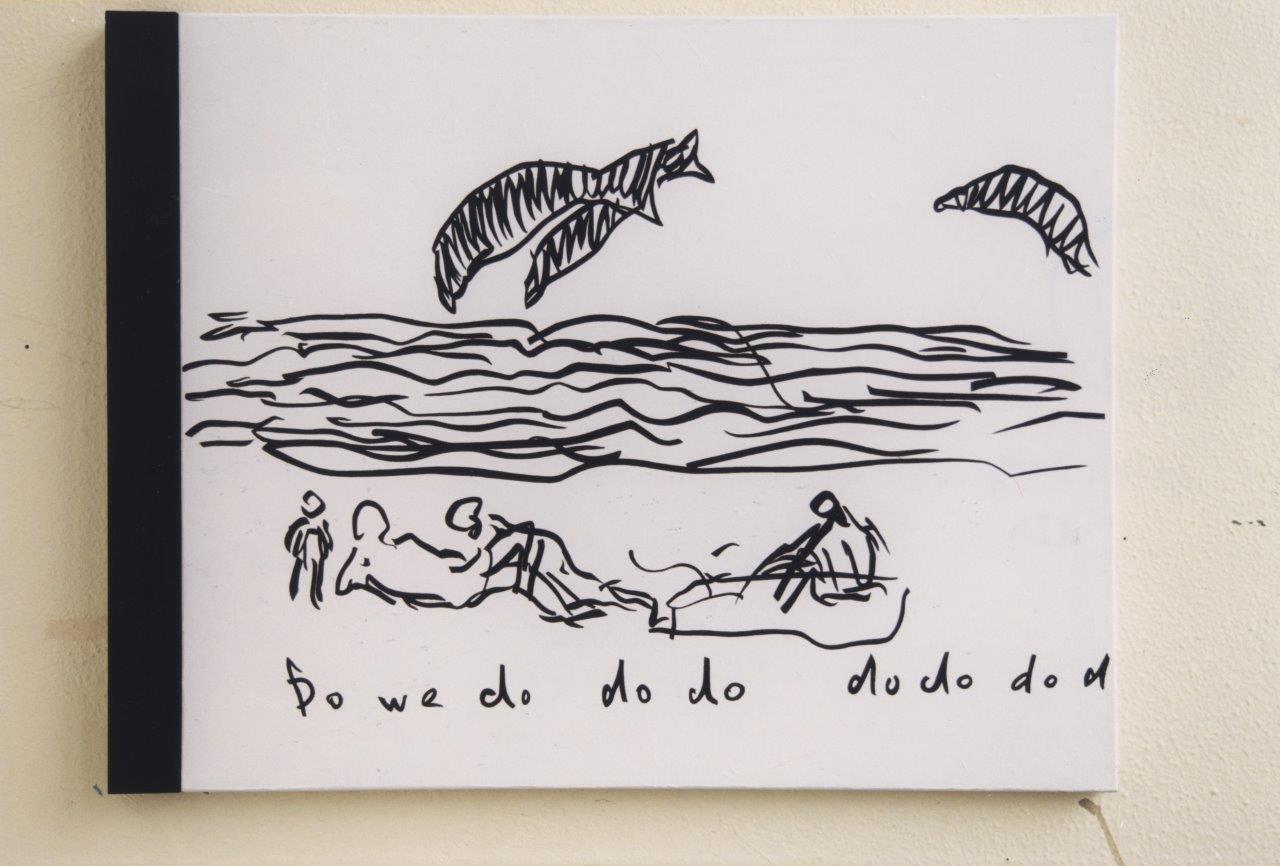 Do we do do do do do do d